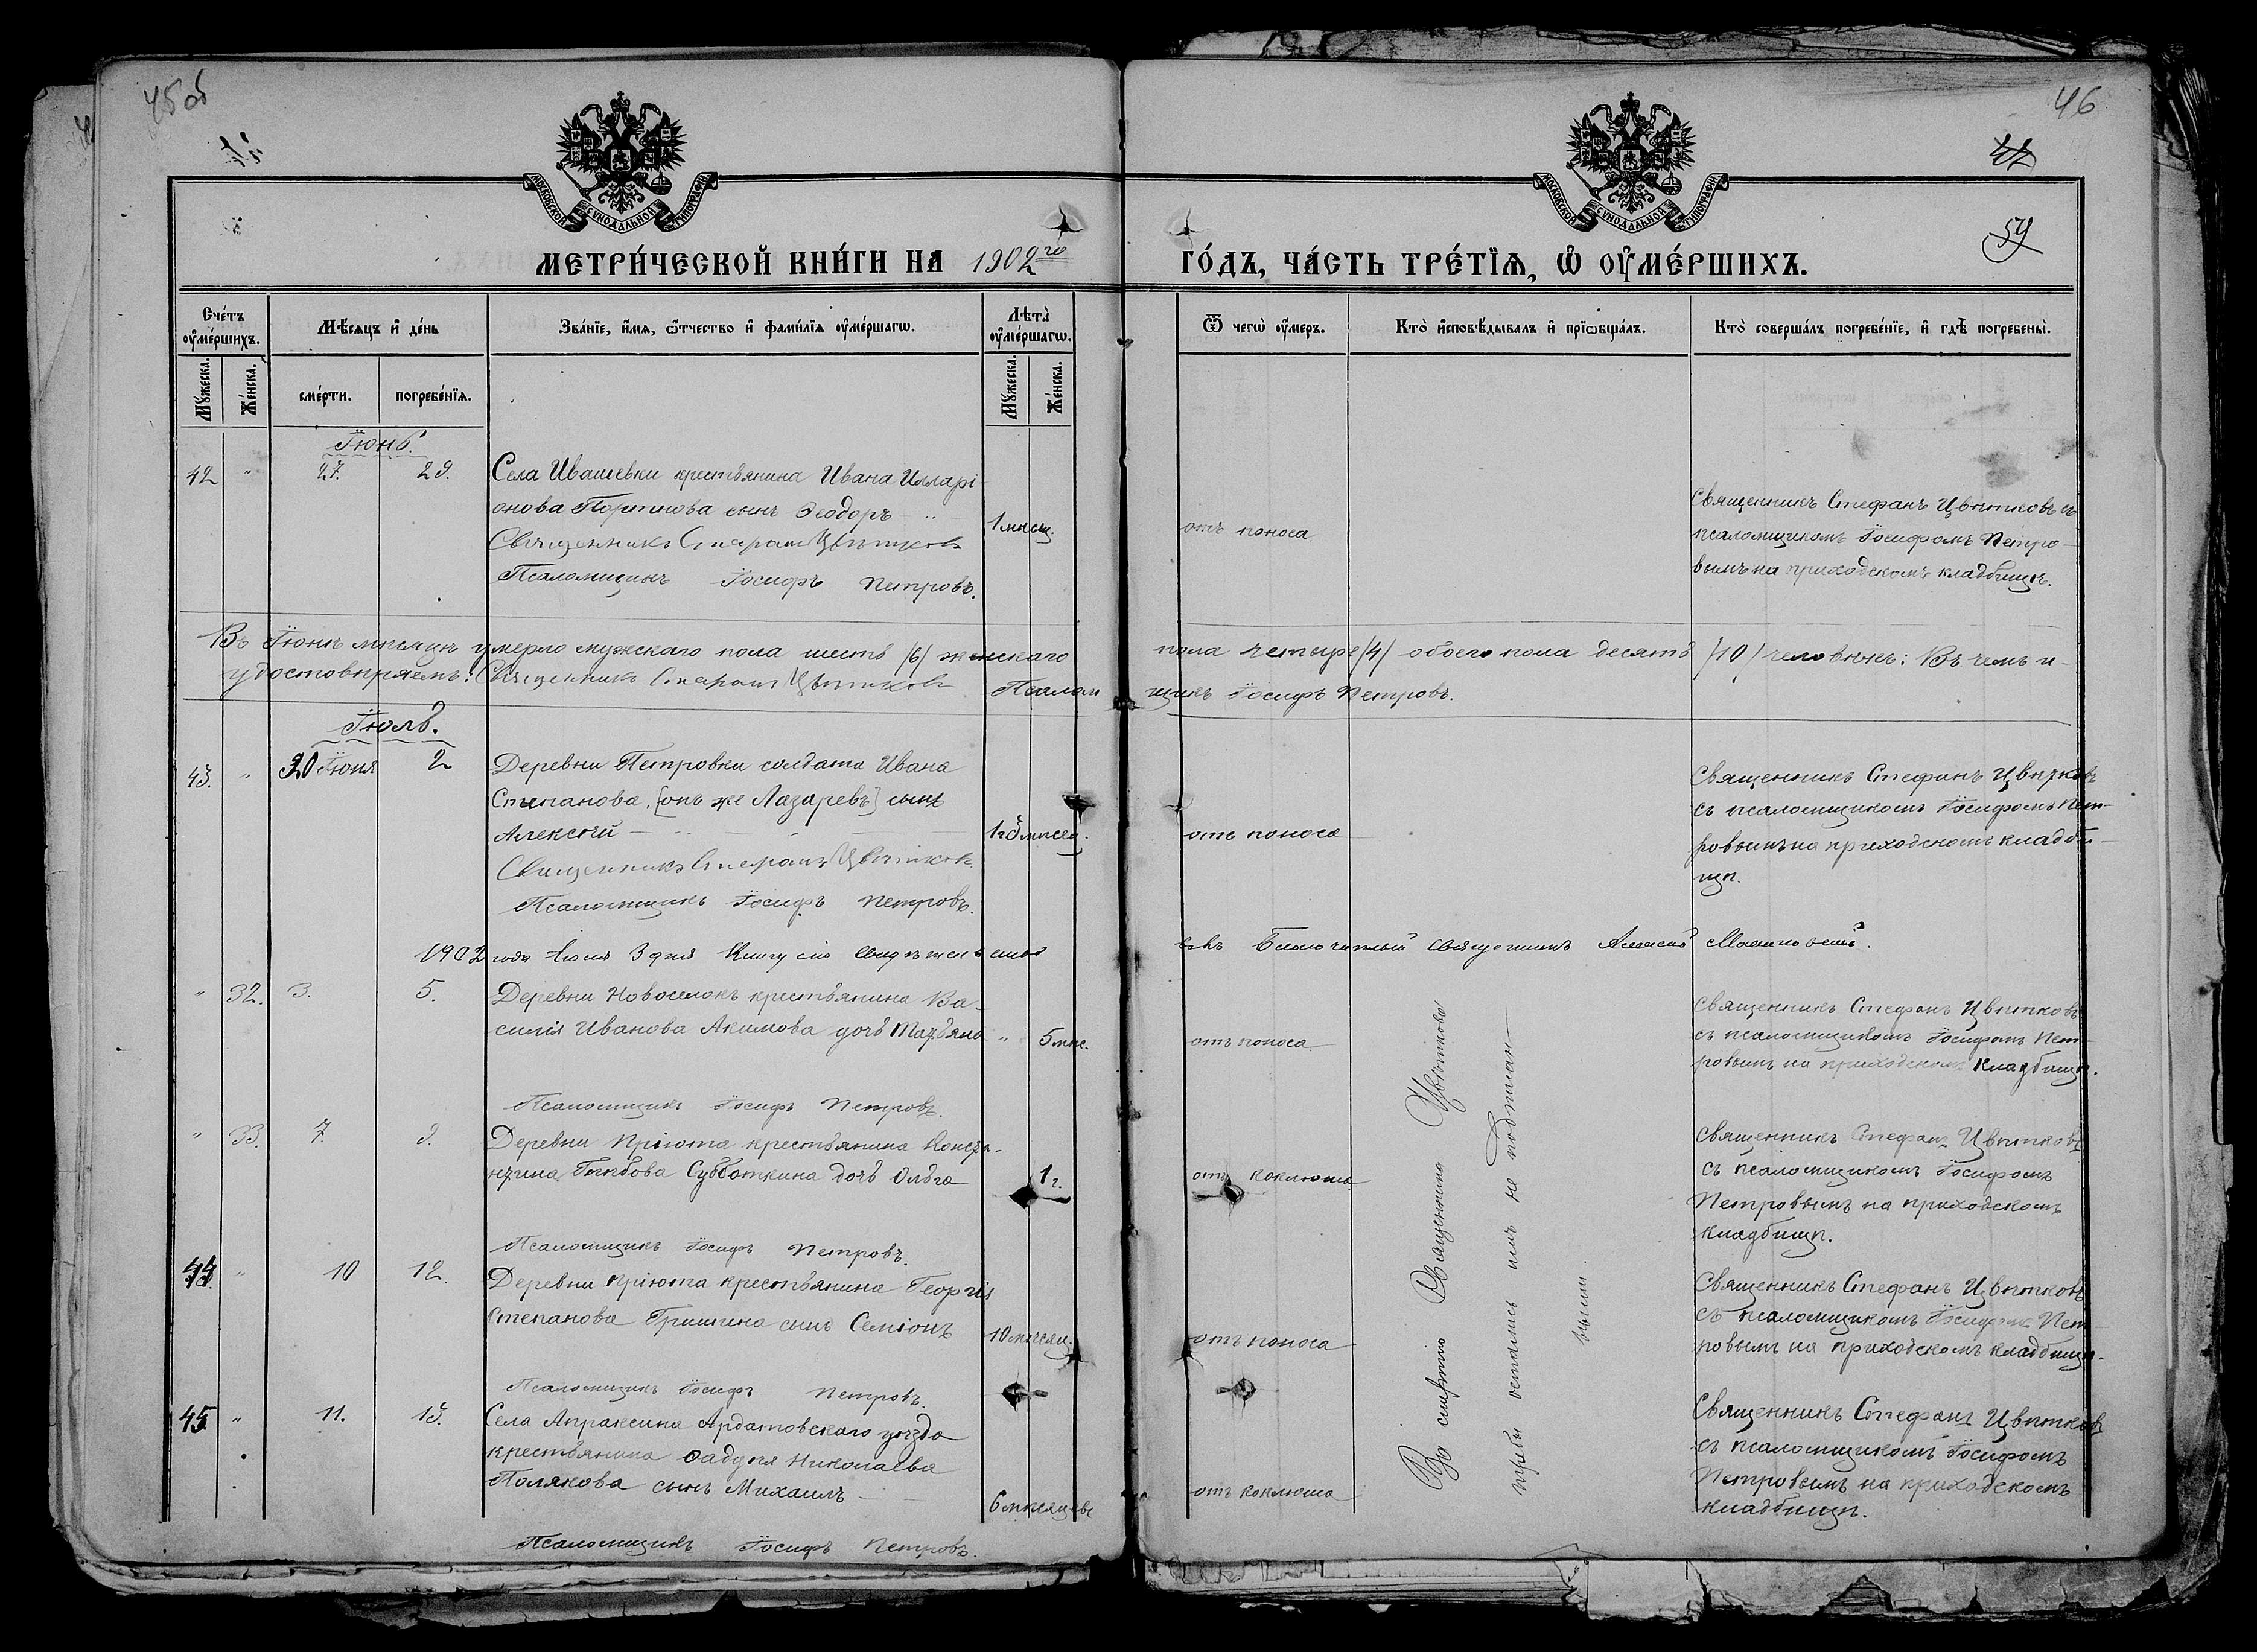 45об
46
42
54
МОСКОВСКОЙ СѴНОДАЛЬНОЙ ТИПОГРАФІИ
МОСКОВСКОЙ СѴНОДАЛЬНОЙ ТИПОГРАФІИ
МЕТРИ́ЧЕСКОЙ КНИ́ГИ НА 1902го ГО́ДЪ, ЧА́СТЬ ТРЕ́ТІѦ, Ѡ ОУМЕ́РШИХЪ.
Сче́тъ оуме́ршихъ.
Мꙋ́жеска.
Же́нска.
Мѣ́сяцъ и де́нь
сме́рти.
погребе́нїѧ.
Зва́нїе, и́мѧ, ѻ҆́тчество и фамі́лїѧ оуме́ршагѡ.
Лѣ́та оуме́ршагѡ.
Мꙋ́жеска.
Же́нска.
Ѿ чегѡ̀ оу́меръ.
Кто̀ и҆сповѣ́дывалъ и прїѡбща́лъ.
Кто̀ соверша́лъ погребе́нїе, и гдѣ̀ погребены̀.
Іюнь.
42 " 27. 29.
Села Ивашевки крестьянина Ивана Илларі
онова Портнова сынъ Ѳеодоръ
Священникъ Стефанъ Цвѣтковъ
Псаломщикъ Іосифъ Петровъ.
1 мѣсяц.
отъ поноса
Священникъ Стефанъ Цвѣтковъ съ
псаломщикомъ Іосифомъ Петро-
вымъ на приходскомъ кладбищѣ.
Въ Іюнѣ мѣсяцѣ умерло мужскаго пола шесть /6/ женскаго пола четыре /4/ обоего пола десять /10/ человѣкъ: Въ чемъ и
удостовѣряемъ: Священникъ Стефанъ Цвѣтковъ Псаломщикъ Іосифъ Петровъ.
Іюль.
43. " 30 Іюня 2
Деревни Петровки солдата Ивана
Степанова, [онъ же Лазаревъ] сынъ
Алексѣй
Священникъ Стефанъ Цвѣтковъ
Псаломщикъ Іосифъ Петровъ.
отъ поноса
Священникъ Стефанъ Цвѣтковъ
съ псаломщикомъ Іосифомъ Пет-
ровымъ на приходскомъ кладби-
щѣ.
1902 года Іюля 3 дня Книгу сію свидѣтельство Благочинный священникъ Алексѣй
" 32. 3. 5.
Деревни Новоселокъ крестьянина Ва-
силія Иванова Акимова дочь Татьяна
" 5 мѣс.
отъ поноса
Псаломщикъ Іосифъ Петровъ.
Священникъ Стефанъ Цвѣтковъ
съ псаломщикомъ Іосифомъ Пет-
ровымъ на приходскомъ кладбищѣ.
" 33. 7. 9.
Деревни Пріюта крестьянина Конста-
нтина Глѣбова Субботкина дочь Ольга
1 г.
отъ коклюша
Псаломщикъ Іосифъ Петровъ.
Священникъ Стефанъ Цвѣтковъ
съ псаломщикомъ Іосифомъ
Петровымъ на приходскомъ
кладбищѣ.
44. " 10 12.
Деревни Пріюта крестьянина Георгія
Степанова Гришина сынъ Семіонъ
10 мѣсяц.
отъ поноса
Псаломщикъ Іосифъ Петровъ.
Священникъ Стефанъ Цвѣтковъ
съ псаломщикомъ Іосифомъ Пет-
ровымъ на приходскомъ кладбищѣ.
45. " 11. 13.
Села Апраксина Ардатовскаго уѣзда
крестьянина Ѳаддея Николаева
Полякова сынъ Михаилъ
6 мѣсяцевъ
отъ коклюша
Псаломщикъ Іосифъ Петровъ.
Священникъ Стефанъ Цвѣтковъ
съ псаломщикомъ Іосифомъ
Петровымъ на приходскомъ
кладбищѣ.
За смертію Священника Цвѣткова
требы остались имъ не подписан-
ными.